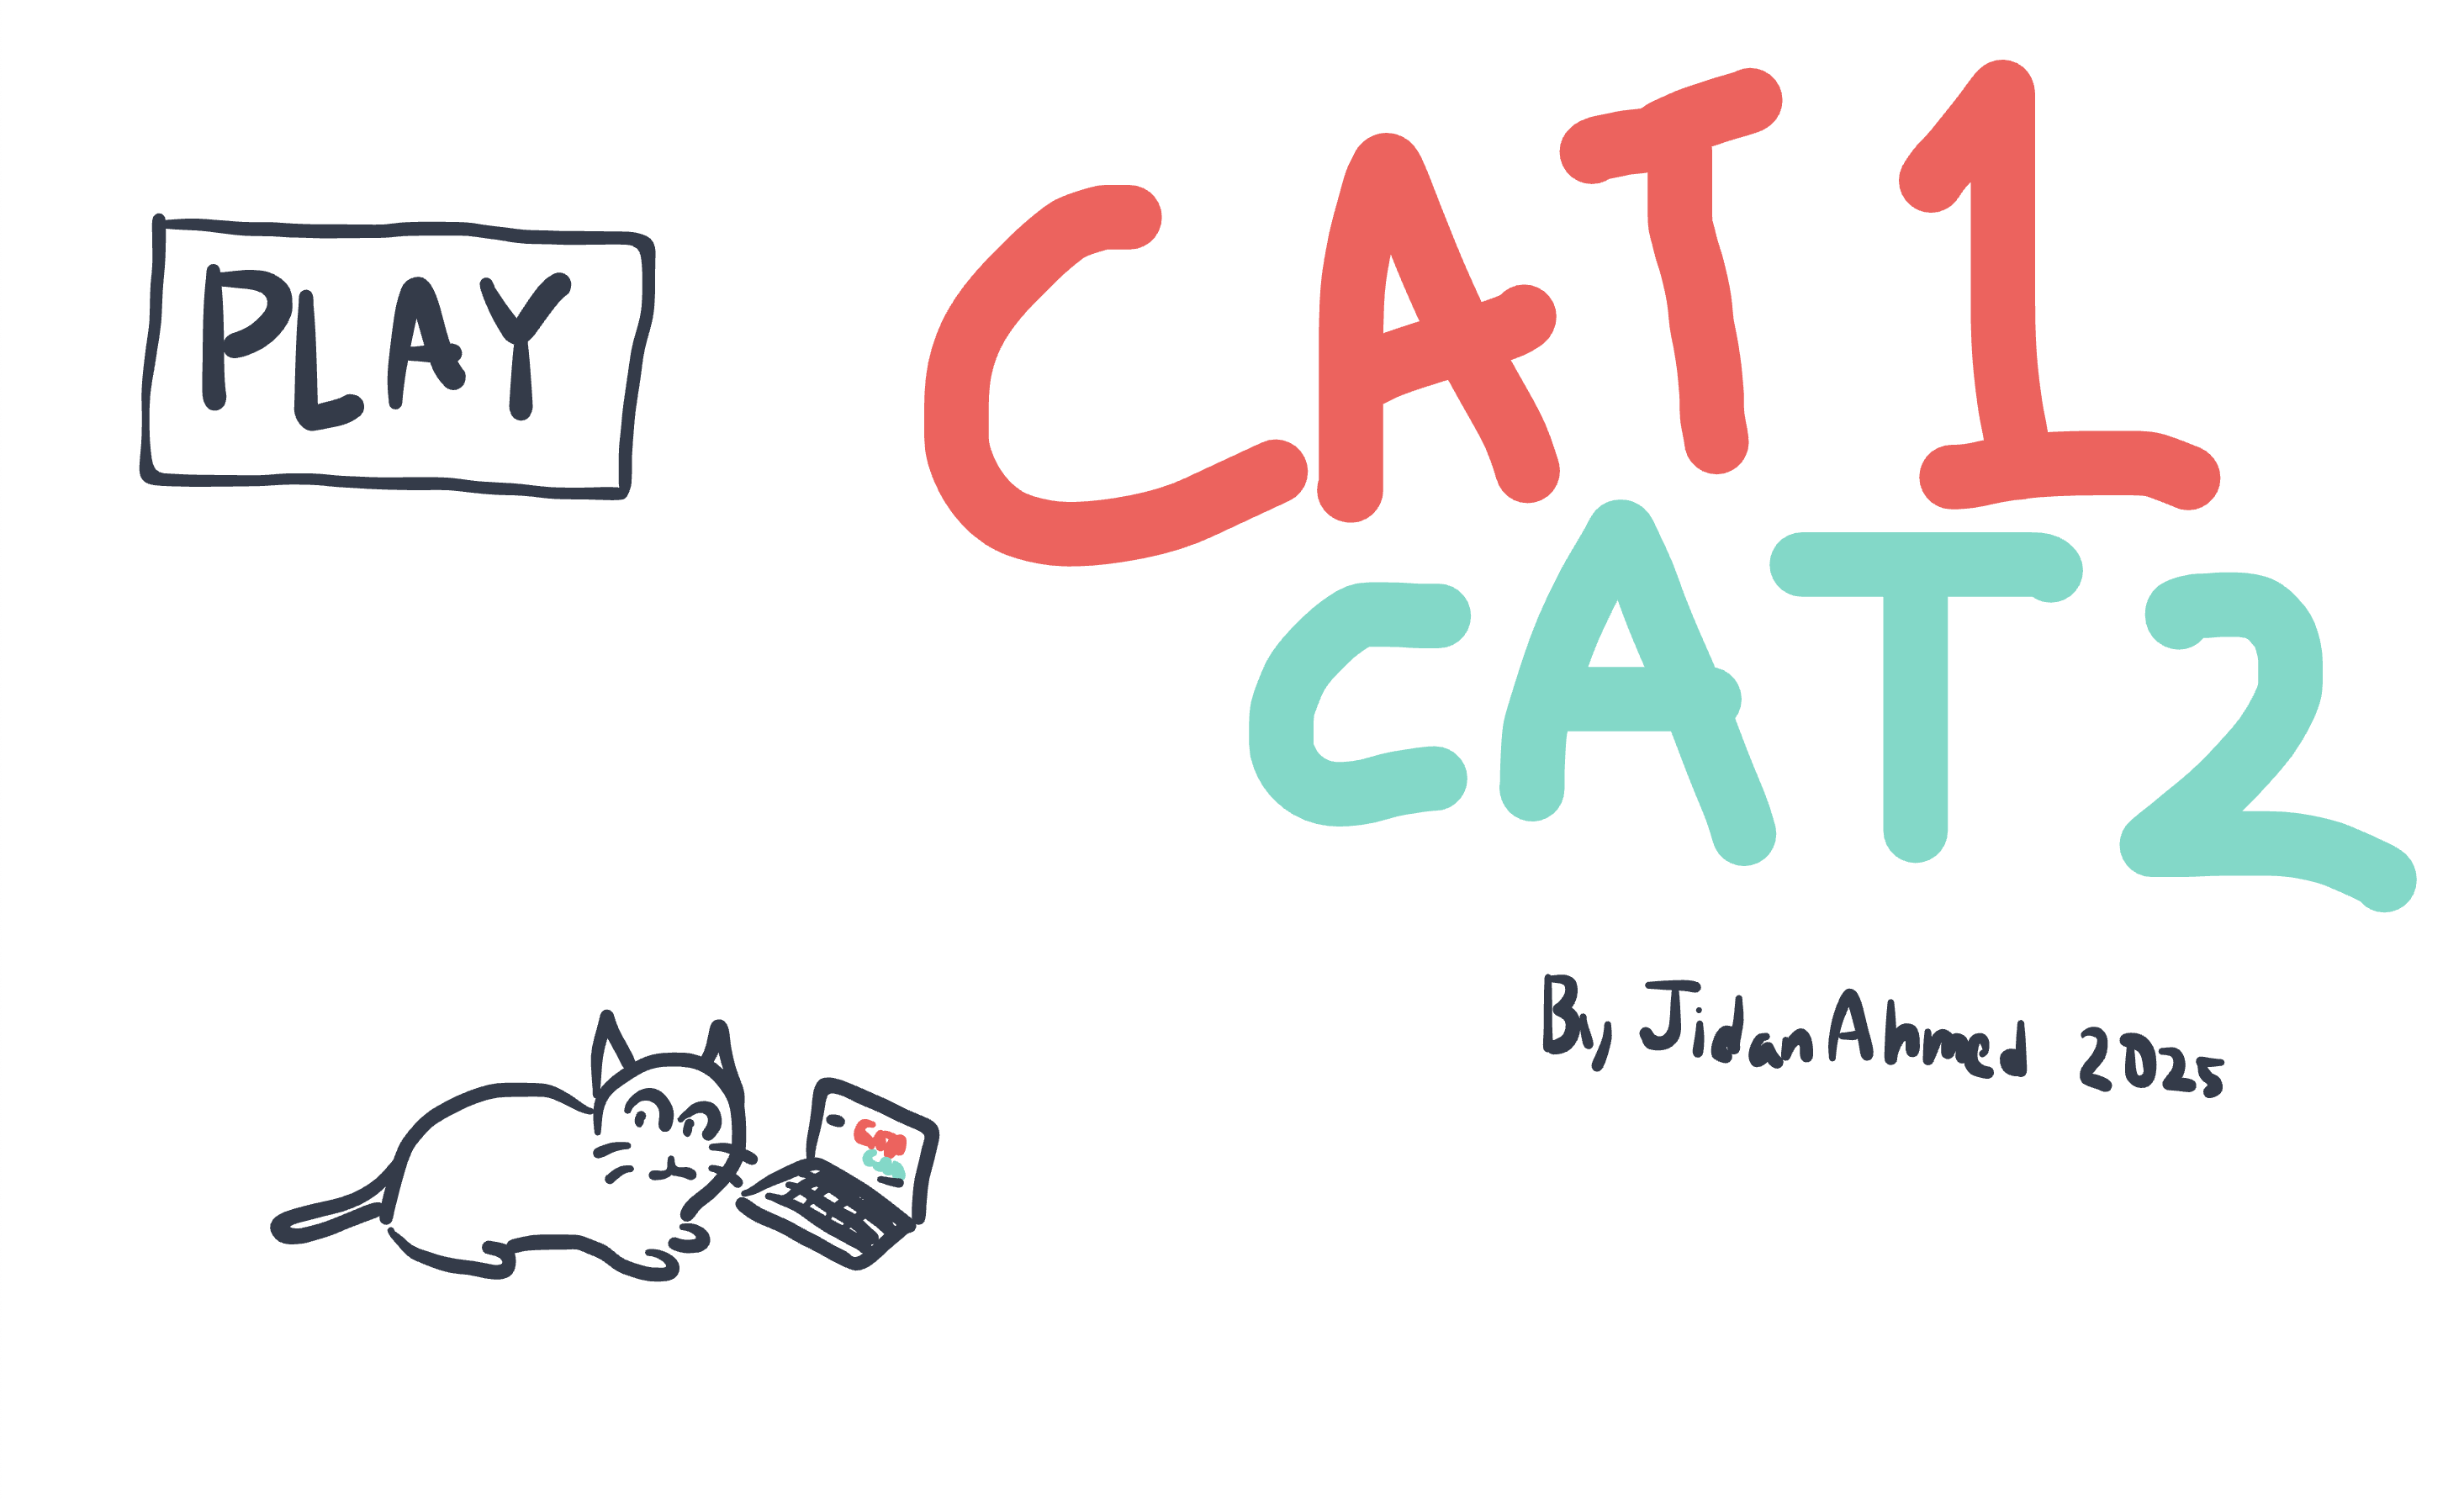 PLAY
CAT 1
CAT 2
By Jidan Ahmed 2025